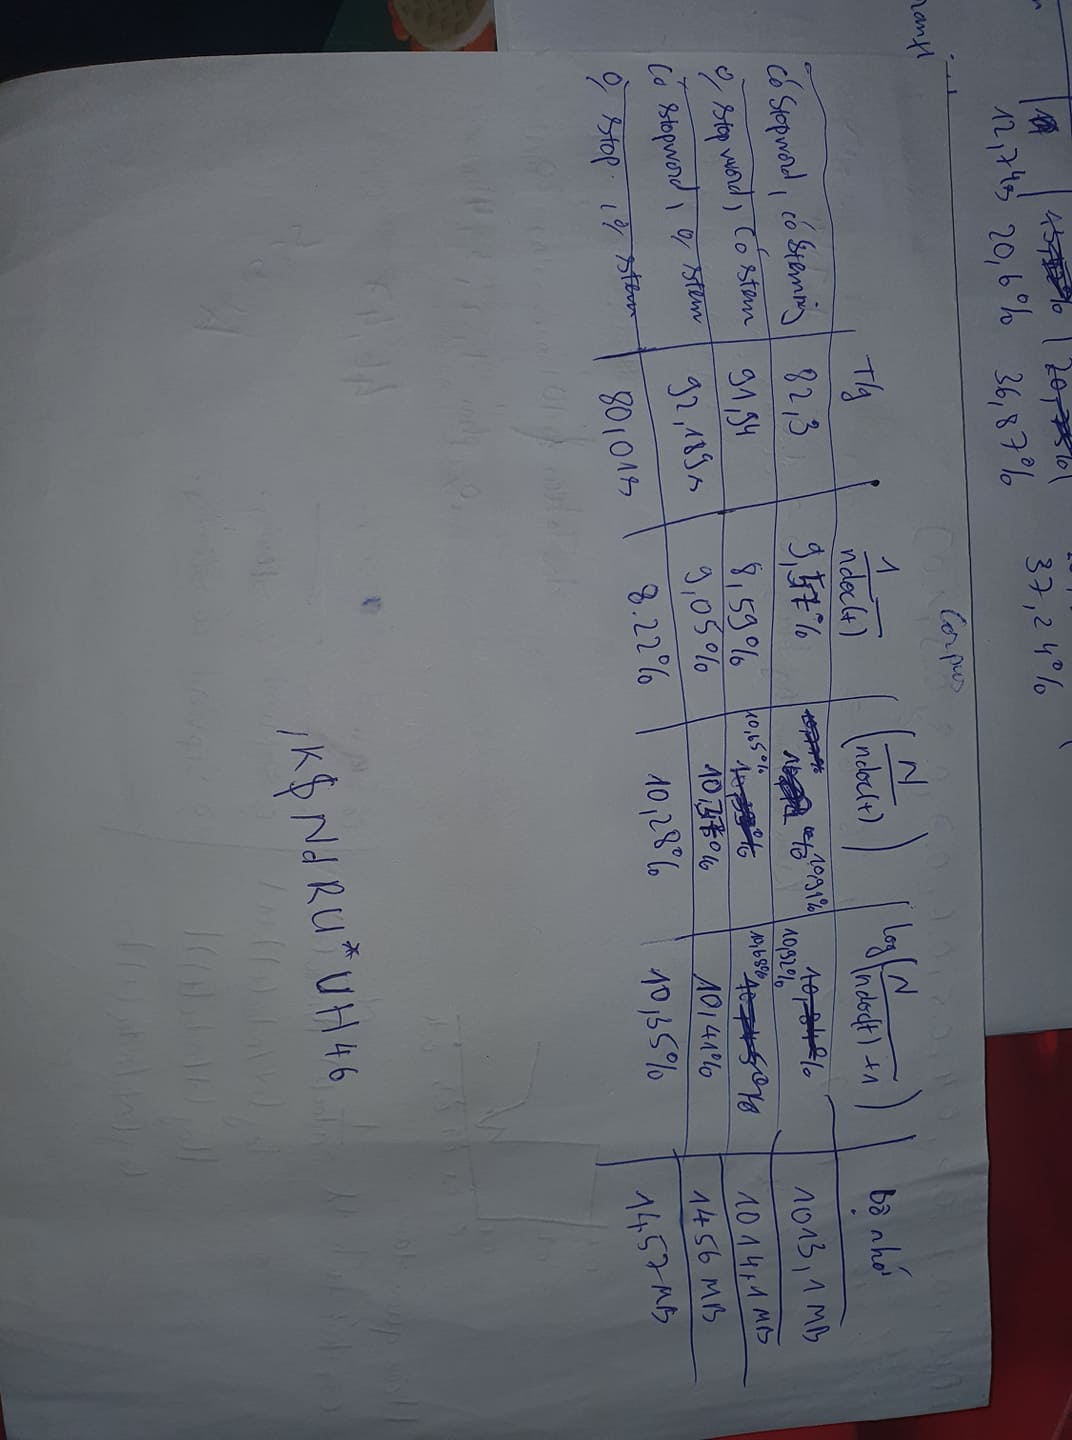 37,24%
12,74s 20,6% 36,87%
Corpus
T/g 1/ndoc(t) (N/ndoc(t)) log(N/(ndoc(t)+1)) Bộ nhớ
Có Stopword, có Stemming 82,3 9,57% 10,91% 10,92% 1013,1 MB
0/ stop word, Có stem 91,94 8,59% 10,65% 10,68% 1014,1 MB
Có stopword, 0/ stem 92,189s 9,05% 10,41% 1456 MB
0/ stop, 0/ stem 80,01s 8.22% 10,28% 10,35% 1457 MB
,K$NdRU*UH46